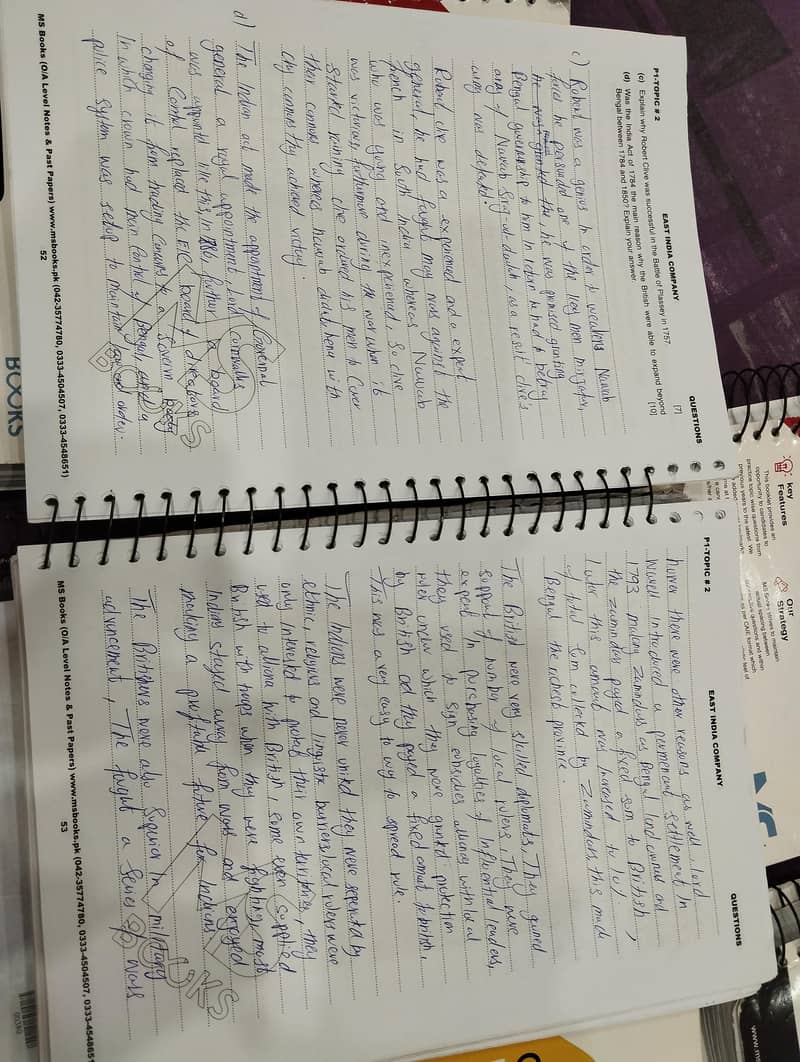 P1-TOPIC # 2
EAST INDIA COMPANY
QUESTIONS
(c) Explain why Robert Clive was successful in the Battle of Plassey in 1757. [7]
(d) Was the India Act of 1784 the main reason why the British were able to expand beyond
Bengal between 1784 and 1850? Explain your answer. [10]
c) Robert was a genius in order to weakens Nawab
force he persuaded one of the key men mirjafar,
he was promised granting
Bengal governorship to him in return he had to betray
army of Nawab Siraj-ud-daulah, as a result clive's
army was defeated.
Robert clive was a experienced and a expert
general, he had faught many wars against the
french in South India whereas Nawab
who was young and inexperienced, so clive
was victorious, furthermore during the war when it
started raining clive ordered his men to Cover
their cannons whereas Nawab didn't hence with
city cannons they achieved victory.
d) The Indian act made the appointment of
general a royal appointment, Lord Cornwallis
was appointed like this in further a board
of Control replaced the E.I.C board of directors
changing it from trading concerns to a Govern body
In which crown had main Control of Bengal, and a
police system was setup to maintain order.
MS Books (O/A Level Notes & Past Papers) www.msbooks.pk (042-35774780, 0333-4504507, 0333-4548651)
52
P1-TOPIC # 2
EAST INDIA COMPANY
QUESTIONS
there were other reasons as well, lord
introduced a permenant settlement in
1793 making Zamindars as Bengal land owners and
the zamindars payed a fixed sum to British,
later this amount was increased to 10/
of total Sum collected by Zamindars this made
Bengal the richest province.
The British were very skilled diplomats, They gained
support of number of local rulers They were
expert in purchasing loyalties of Influential leaders,
they used to sign subsidies alliances with local
ruler under which they were granted protection
by British and they payed a fixed amount to british,
This was a very easy to way to spread rule.
The Indians were never united they were seperated by
ethnic, religious and linguistic barriers, local rulers were
only interested to protect their own territories, they
used to alliance with British, some even supplied
British with troops when they were fighting, most
Indians stayed away from wars and enjoyed
making a profitable future for Indians
The Britishers were also Superior in military
advancement, The faught a Series of wars
MS Books (O/A Level Notes & Past Papers) www.msbooks.pk (042-35774780, 0333-4504507, 0333-4548651
53
key
Features
This booklet provides an
opportunity to candidates to
Our
Strategy
BOOKS